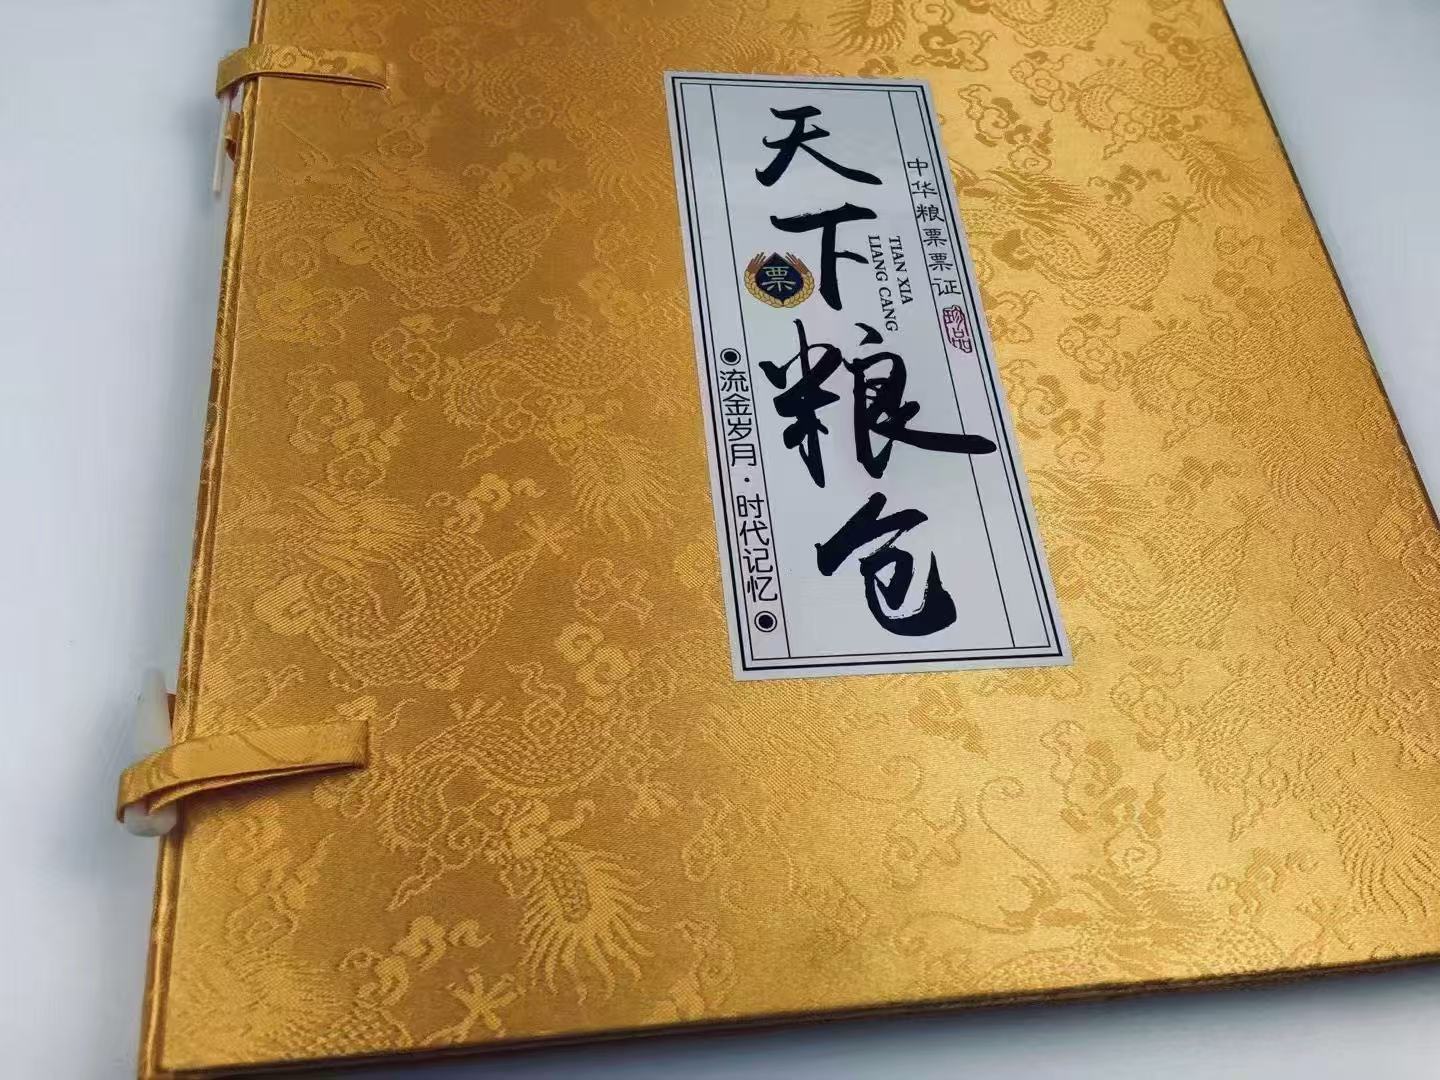 中华粮票票证
珍品
天下粮仓
TIAN XIA
LIANG CANG
票
流金岁月·时代记忆